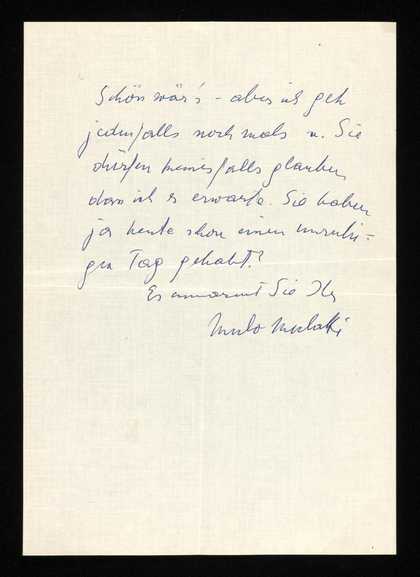 Schön wär's – aber ich geh
jedenfalls nochmals u. Sie
dürfen keinesfalls glauben,
dass ich es erwarte. Sie haben
ja heute schon einen unruhi-
gen Tag gehabt!
Es umarmt Sie Ihr